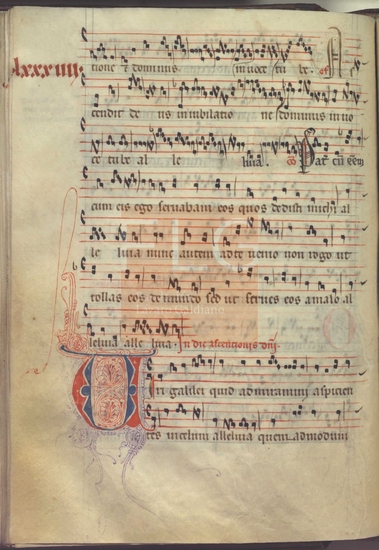 lxxxiiii.
tione & dominus in voce tu be. of A
cendit de us in iubilatio ne dominus in uo
ce tube al le luia. co Pater cum essem
cum eis ego seruabam eos quos dedisti michi al
le luia nunc autem ad te uenio non rogo ut
tollas eos de mundo sed ut serues eos a malo al
leluia alle luia. In die ascensionis dni.
Viri galilei quid admiramini aspicien
tes in celum alleluia quem admodum